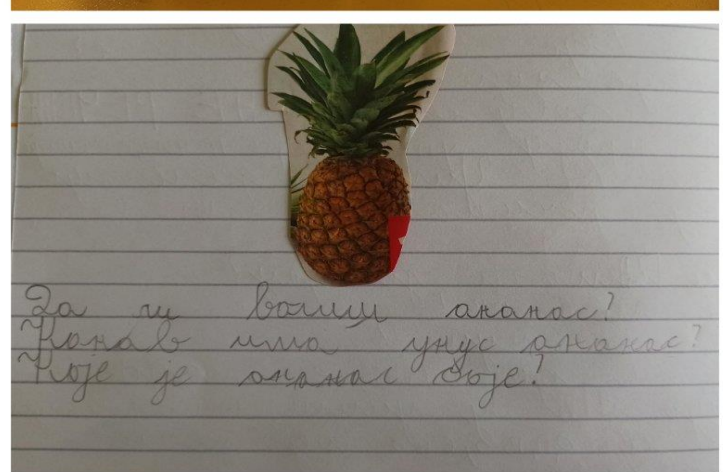 Да ли волиш ананас?
Какав има укус ананас?
Које је ананас боје?